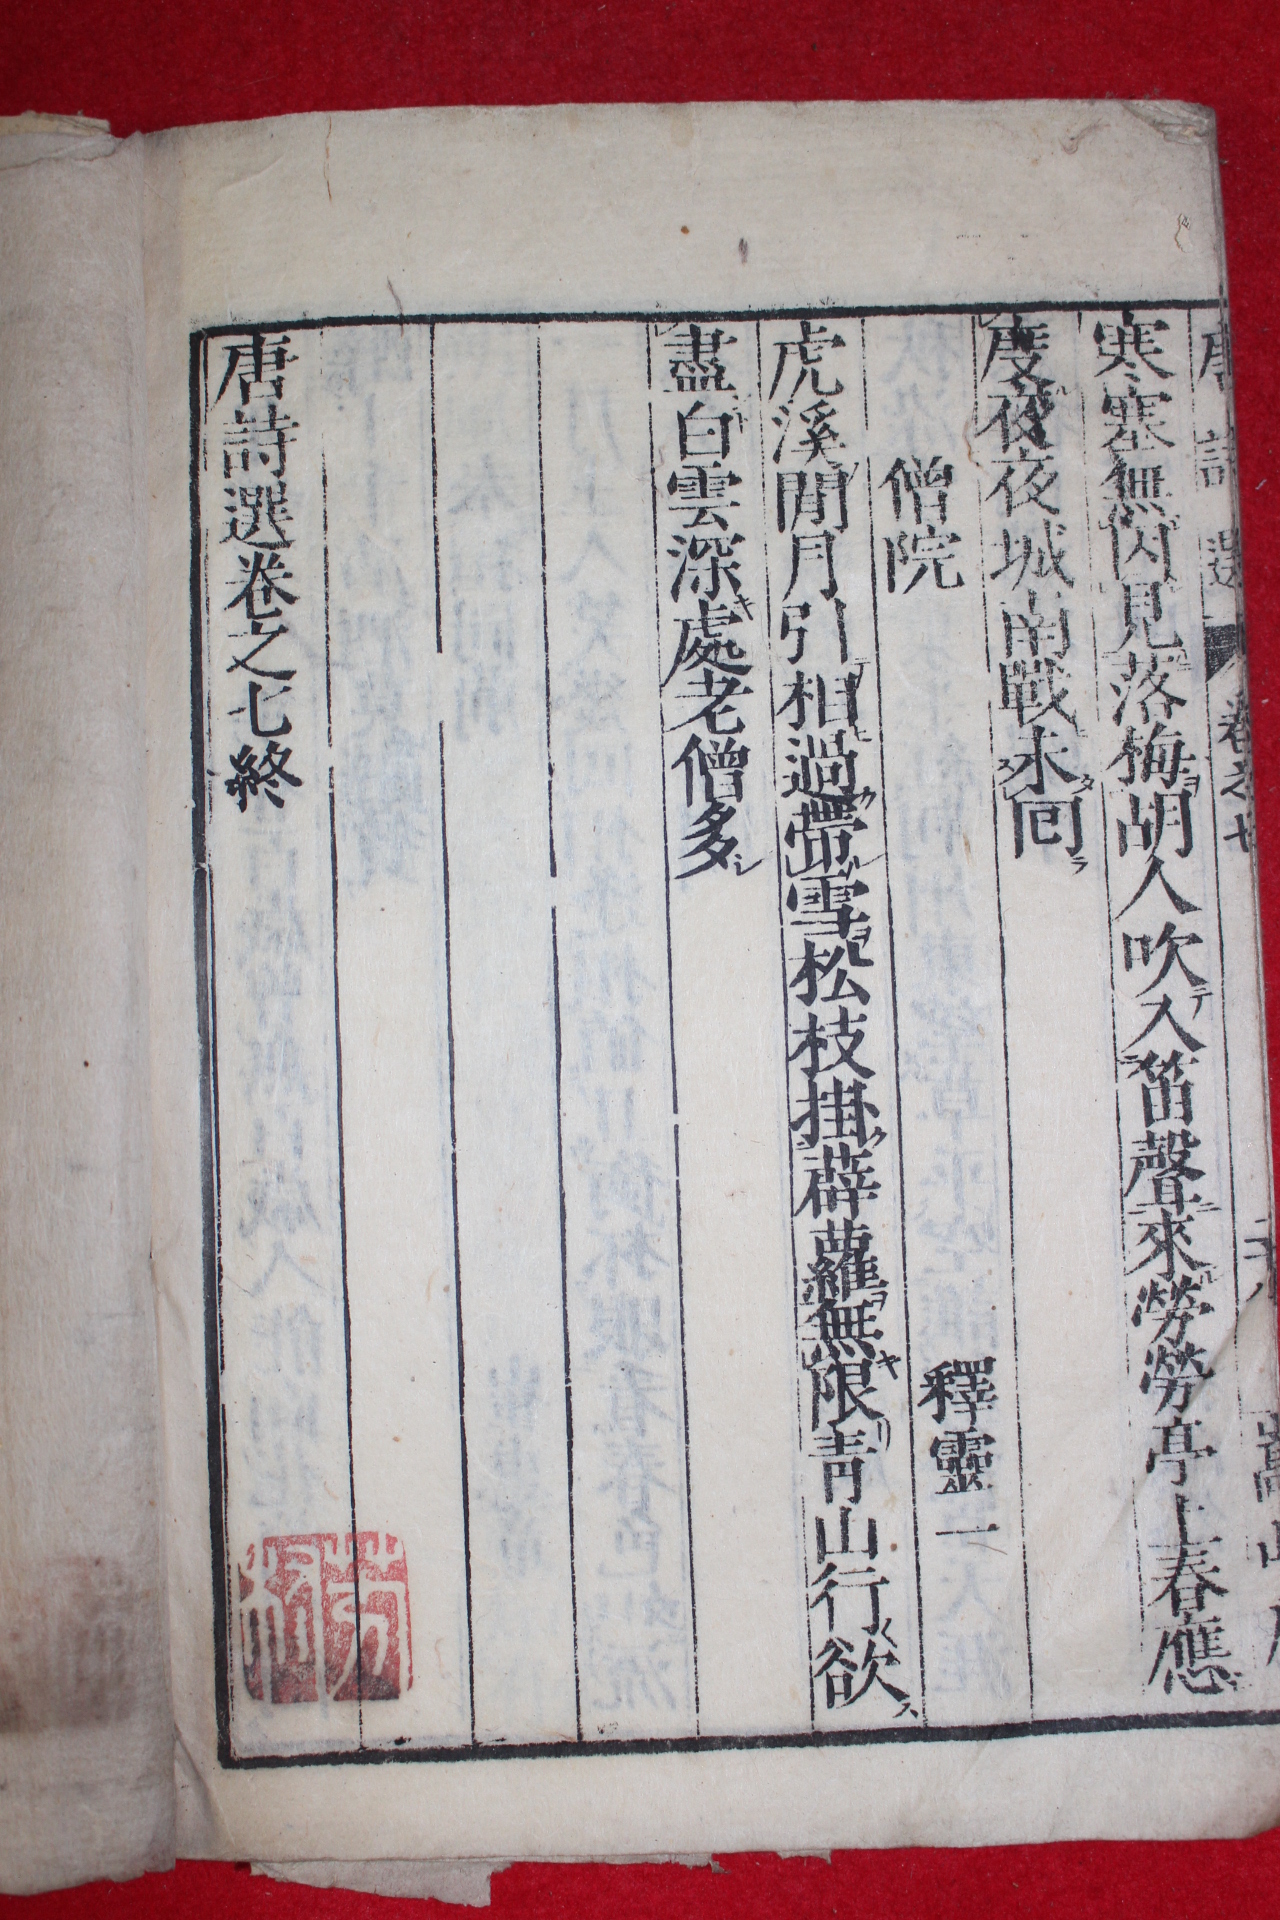 唐詩選 卷之七
寒塞無因見落梅胡人吹入笛聲來勞勞亭上春應
度夜夜城南戰未囘
僧院
釋靈一
虎溪閒月引相過帶雪松枝掛薜蘿無限靑山行欲
盡白雲深處老僧多
唐詩選卷之七終